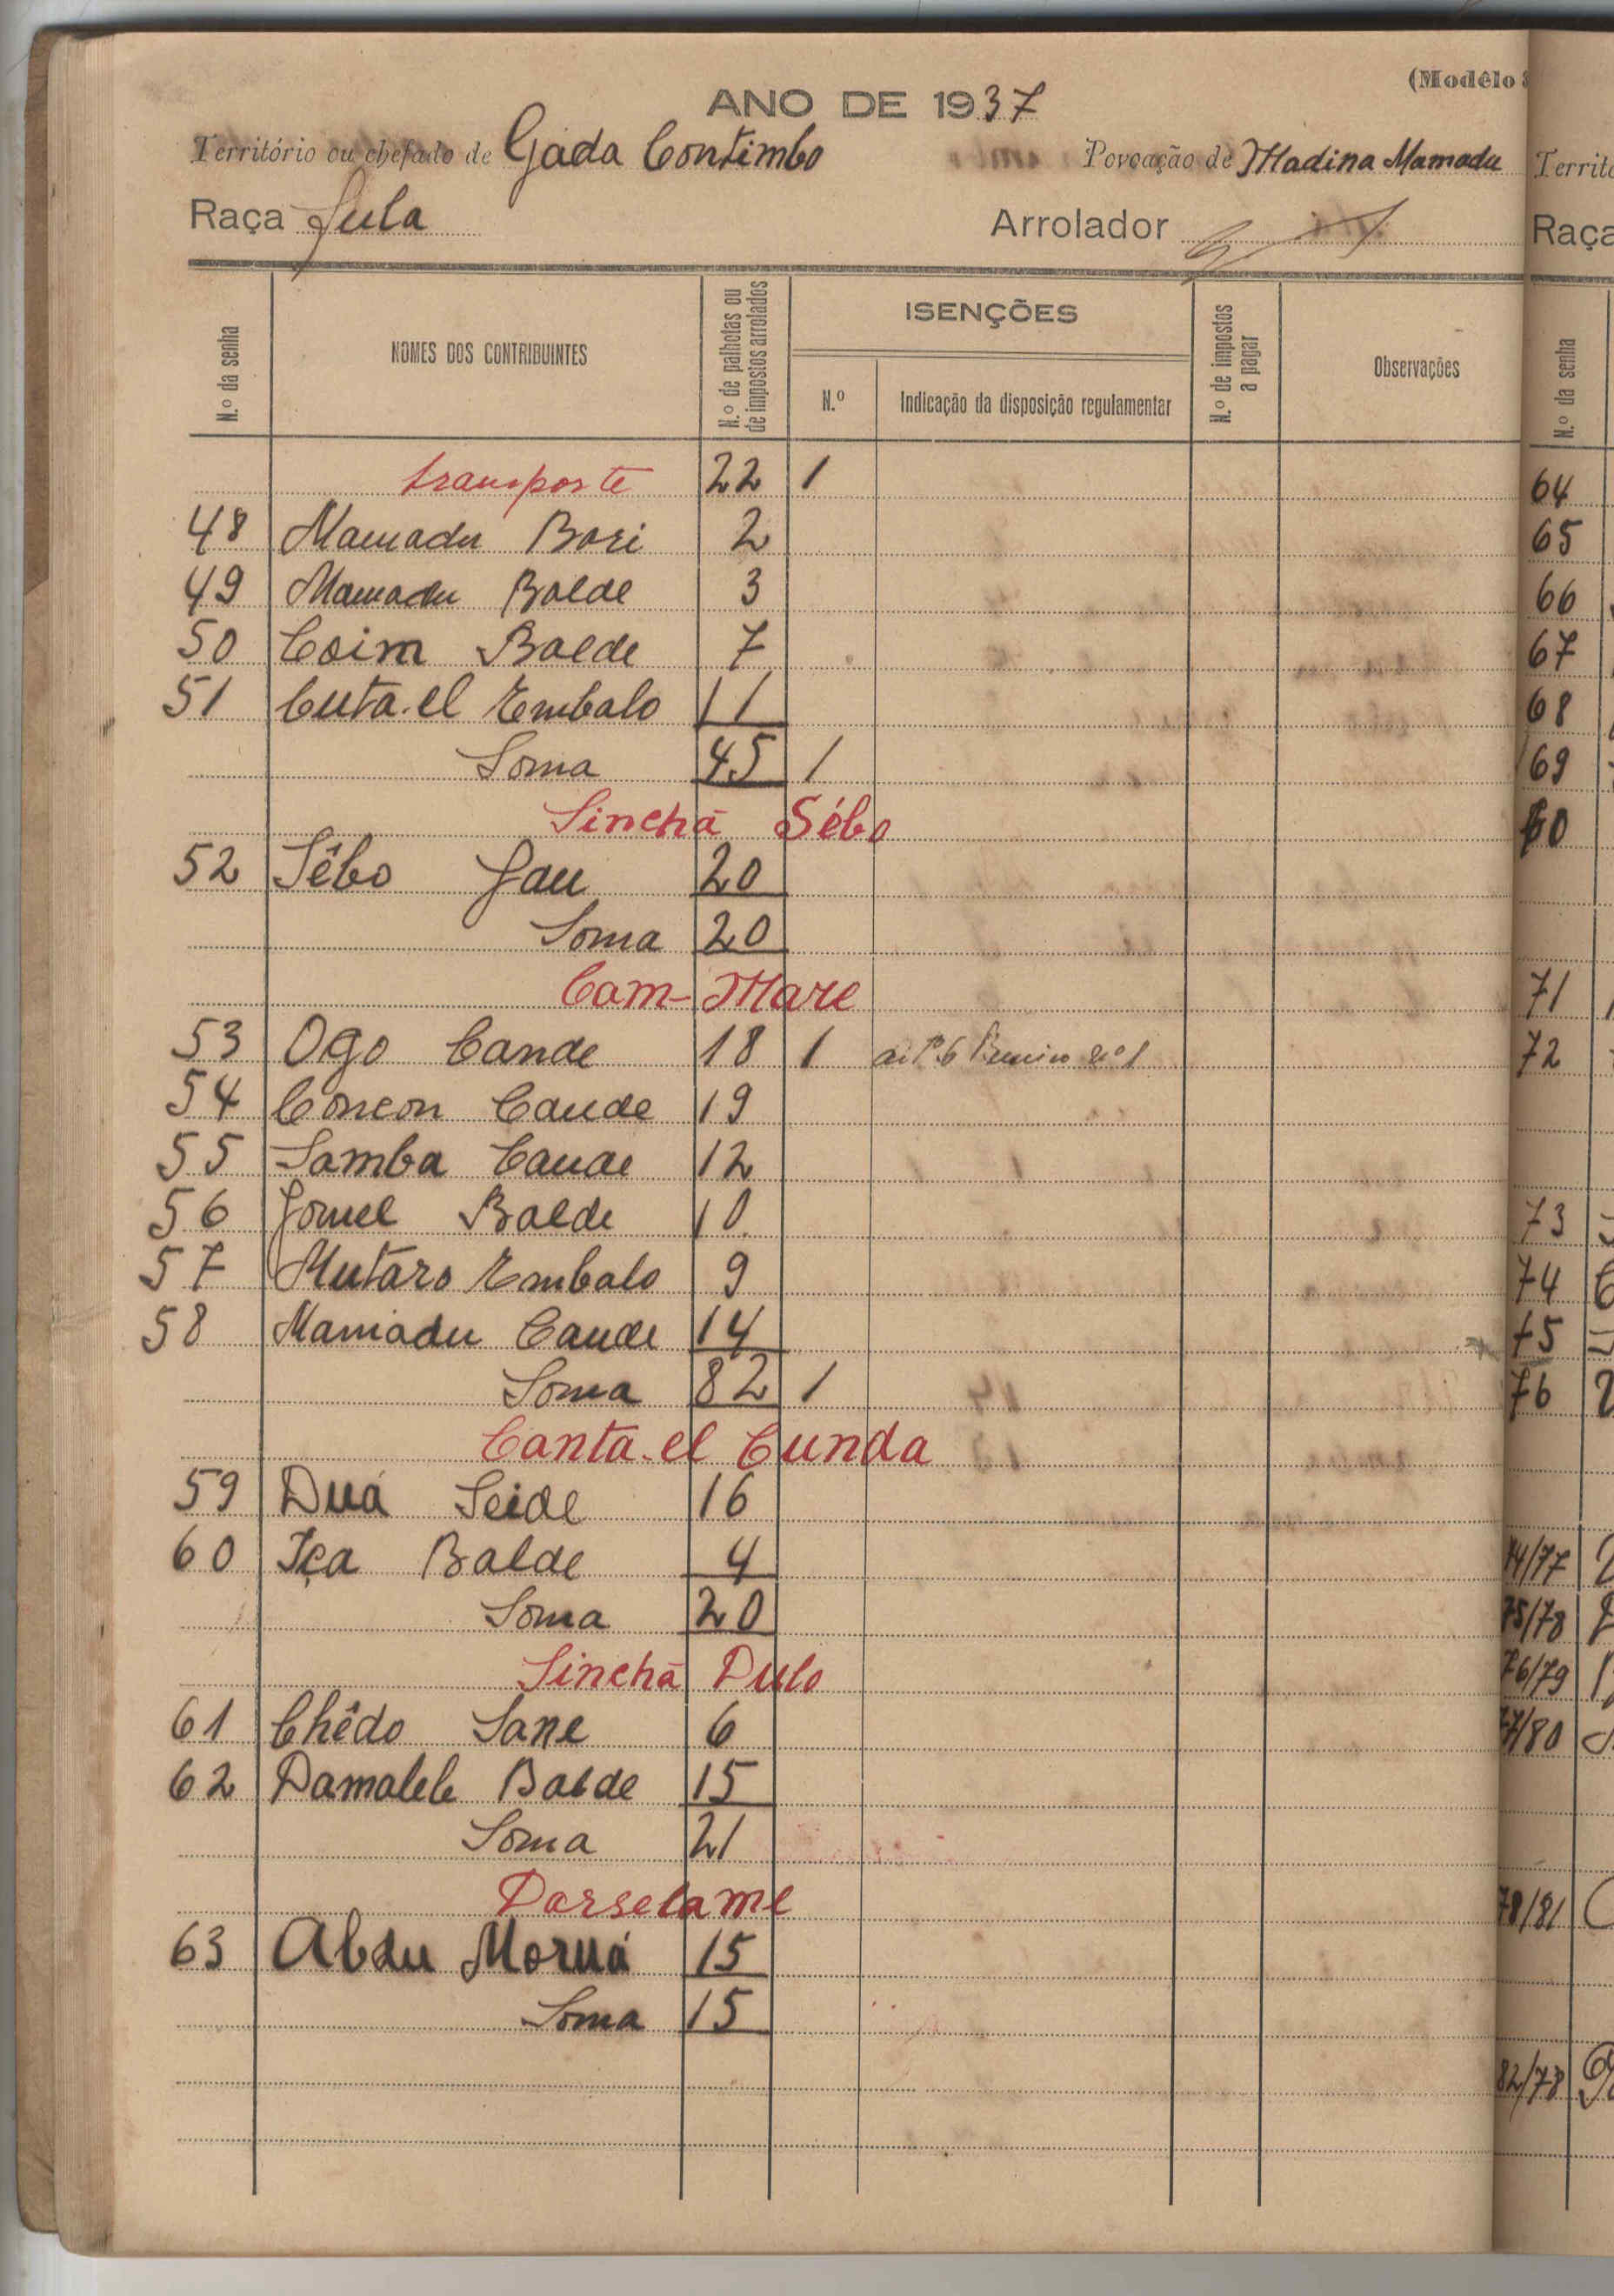 (Modêlo
ANO DE 1937
Território ou chefado de Gada Contimbo Povoação de Madina Mamadu
Raça Fula Arrolador
N.º da senha NOMES DOS CONTRIBUINTES N.º de palhotas ou de impostos arrolados ISENÇÕES N.º Indicação da disposição regulamentar N.º de impostos a pagar Observações
transporte 22 1
48 Mamadu Bori 2
49 Mamadu Balde 3
50 Coim Balde 7
51 Cuta-el Embalo 11
Soma 45 1
Sinchã Sébo
52 Sêbo Jau 20
Soma 20
Cam-Mare
53 Ogo Cande 18 1 nº 1
54 Concon Cande 19
55 Samba Cande 12
56 Jomel Balde 10
57 Mutaro Embalo 9
58 Mamadu Cande 14
Soma 82 1
Canta-el Cunda
59 Duá Seide 16
60 Iça Balde 4
Soma 20
Sinchã Dulo
61 Chêdo Sane 6
62 Damalele Balde 15
Soma 21
Darselame
63 Abdu Moruá 15
Soma 15
Territó
Raça
N.º da senha
64
65
66
67
68
69
71
72
73
74
75
76
74/77
75/78
76/79
77/80
78/81